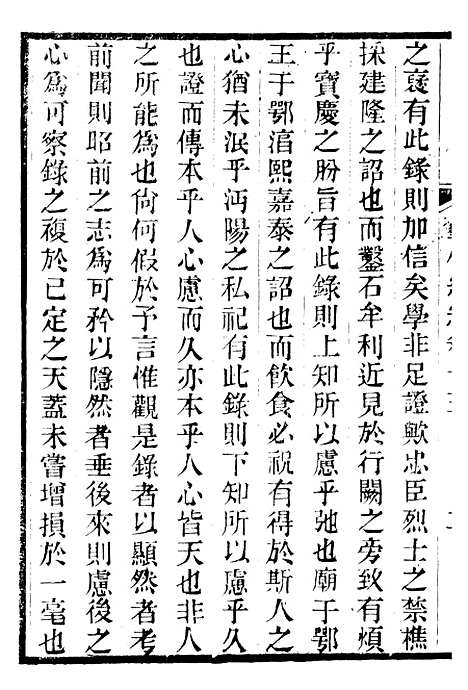 之裦有此錄則加信矣學非足證歟忠臣烈士之禁樵
採建隆之詔也而鑿石牟利近見於行闕之旁致有煩
乎寶慶之朌旨有此錄則上知所以慮乎弛也廟于鄂
王于鄂湻熙嘉泰之詔也而飮食必祝有得於斯人之
心猶未泯乎沔陽之私祀有此錄則下知所以慮乎久
也證而傳本乎人心慮而久亦本乎人心皆天也非人
之所能爲也尙何假於予言惟觀是錄者以顯然者考
前聞則昭前之志爲可矜以隱然者垂後來則慮後之
心爲可察錄之複於已定之天蓋未嘗增損於一毫也